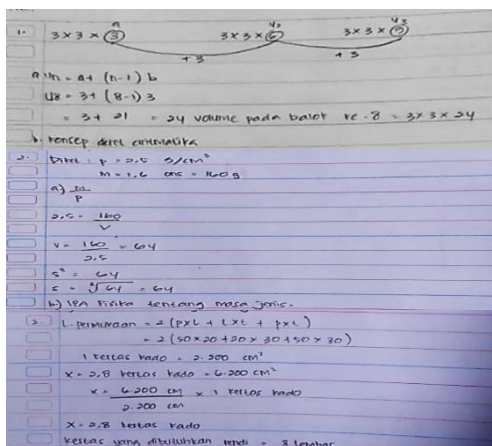 1. 3 x 3 x 3 3 x 3 x 6 3 x 3 x 9
a U2 U3
+3 +3
a Un = a + (n-1) b
U8 = 3 + (8-1) 3
= 3 + 21 = 24 volume pada balok ke-8 = 3 x 3 x 24
b. konsep deret aritmatika
2. Diket : p = 2,5 g/cm³
m = 1,6 ons = 160 g
a) m/p
2,5 = 160/V
V = 160/2,5 = 64
s³ = 64
s = ∛64 = 64
b) IPA Fisika tentang masa jenis.
3. L. permukaan = 2 (pxl + lxt + pxt)
= 2 (50 x 20 + 20 x 30 + 50 x 30)
1 kertas kado = 2.200 cm²
x = 2,8 kertas kado = 6.200 cm²
x = 6.200 cm/2.200 cm x 1 kertas kado
x = 2,8 kertas kado
kertas yang dibutuhkan = 3 lembar